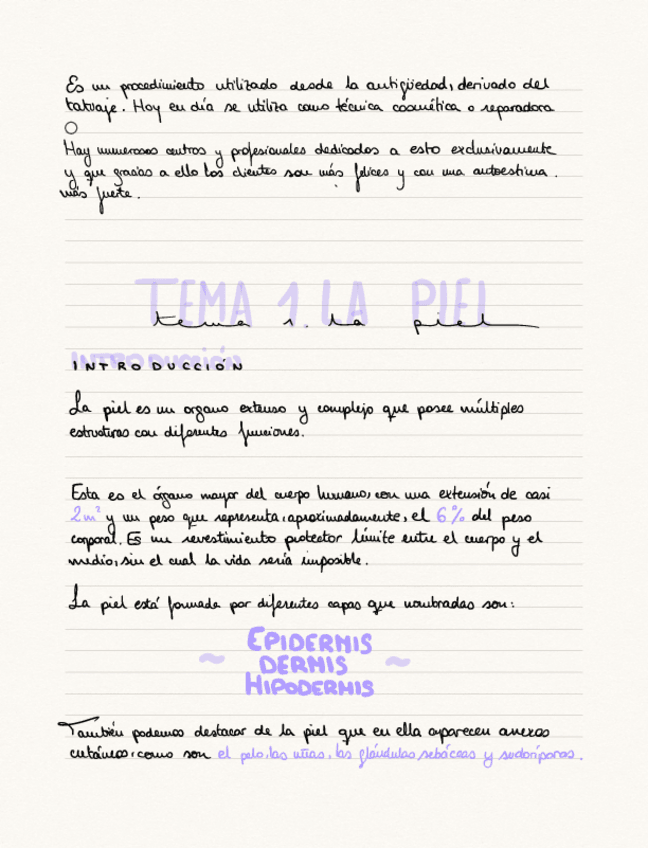 Es un procedimiento utilizado desde la antigüedad, derivado del
tatuaje. Hoy en día se utiliza como técnica cosmética o reparadora
Hay numerosos centros y profesionales dedicados a esto exclusivamente
y que gracias a ello los clientes son más felices y con una autoestima
más fuerte.
TEMA 1. LA PIEL
tema 1. la piel
INTRODUCCIÓN
INTRODUCCIÓN
La piel es un organo extenso y complejo que posee múltiples
estructuras con diferentes funciones.
Esta es el órgano mayor del cuerpo humano, con una extensión de casi
2m² y un peso que representa, aproximadamente, el 6% del peso
corporal. Es un revestimiento protector límite entre el cuerpo y el
medio, sin el cual la vida sería imposible.
La piel está formada por diferentes capas que nombradas son:
~ EPIDERMIS ~
DERMIS
HIPODERMIS
También podemos destacar de la piel que en ella aparecen anexos
cutáneos, como son el pelo, las uñas, las glándulas sebáceas y sudoríparas.